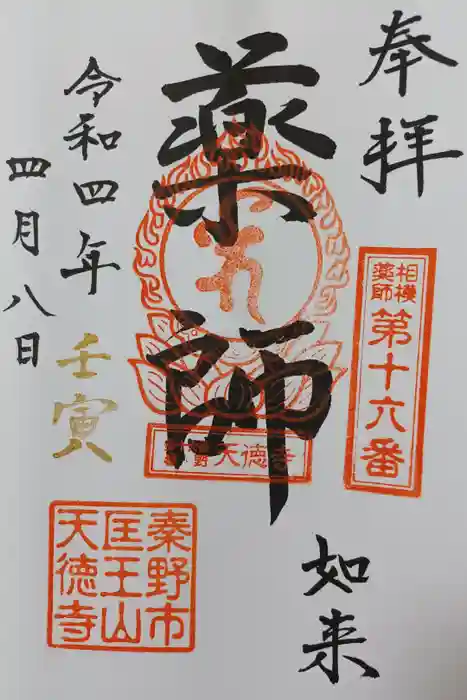 奉拝
相模
薬師
第十六番
薬師
如来
天徳寺
令和四年
壬寅
四月八日
秦野市
匡王山
天徳寺